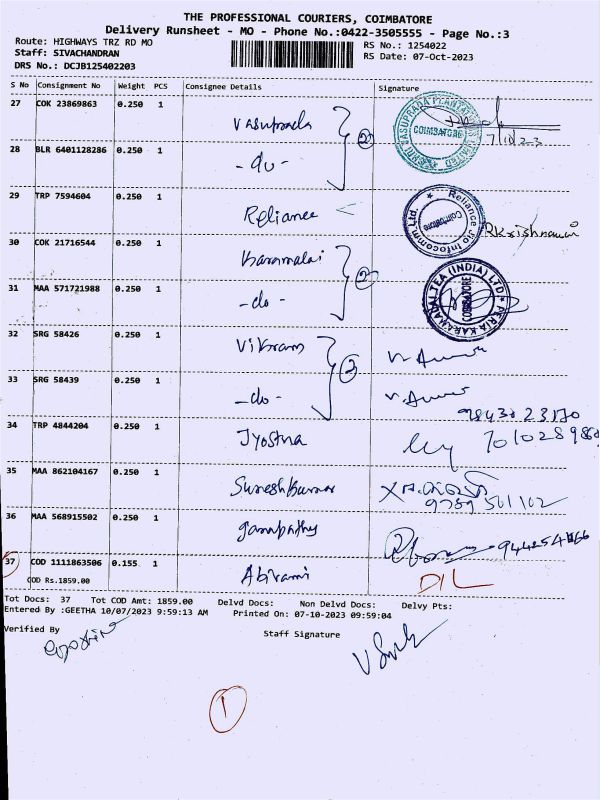 THE PROFESSIONAL COURIERS, COIMBATORE
Delivery Runsheet - MO - Phone No.:0422-3505555 - Page No.:3
Route: HIGHWAYS TRZ RD MO
RS No.: 1254022
Staff: SIVACHANDRAN
RS Date: 07-Oct-2023
DRS No.: DCJB125402203
S No Consignment No Weight PCS Consignee Details Signature
27 COK 23869863 0.250 1 Vasuprada
COIMBATORE
7/10/23
28 BLR 6401128286 0.250 1 - do - 2
29 TRP 7594604 0.250 1 Reliance
Reliance Jio Infocomm Ltd. Coimbatore
R Krishnaveni
30 COK 21716544 0.250 1 Karamalai
31 MAA 571721988 0.250 1 - do - 2
PERIA KARAMALAI TEA (INDIA) LTD COIMBATORE
32 SRG 58426 0.250 1 Vikram
33 SRG 58439 0.250 1 - do -
34 TRP 4844204 0.250 1 Jyostna
35 MAA 862104167 0.250 1 Sureshkumar
9789 501102
36 MAA 568915502 0.250 1 ganapathy
37 COD 1111863506 0.155 1 Abirami D/L
COD Rs.1859.00
Tot Docs: 37 Tot COD Amt: 1859.00 Delvd Docs: Non Delvd Docs: Delvy Pts:
Entered By :GEETHA 10/07/2023 9:59:13 AM Printed On: 07-10-2023 09:59:04
Verified By
Staff Signature
1